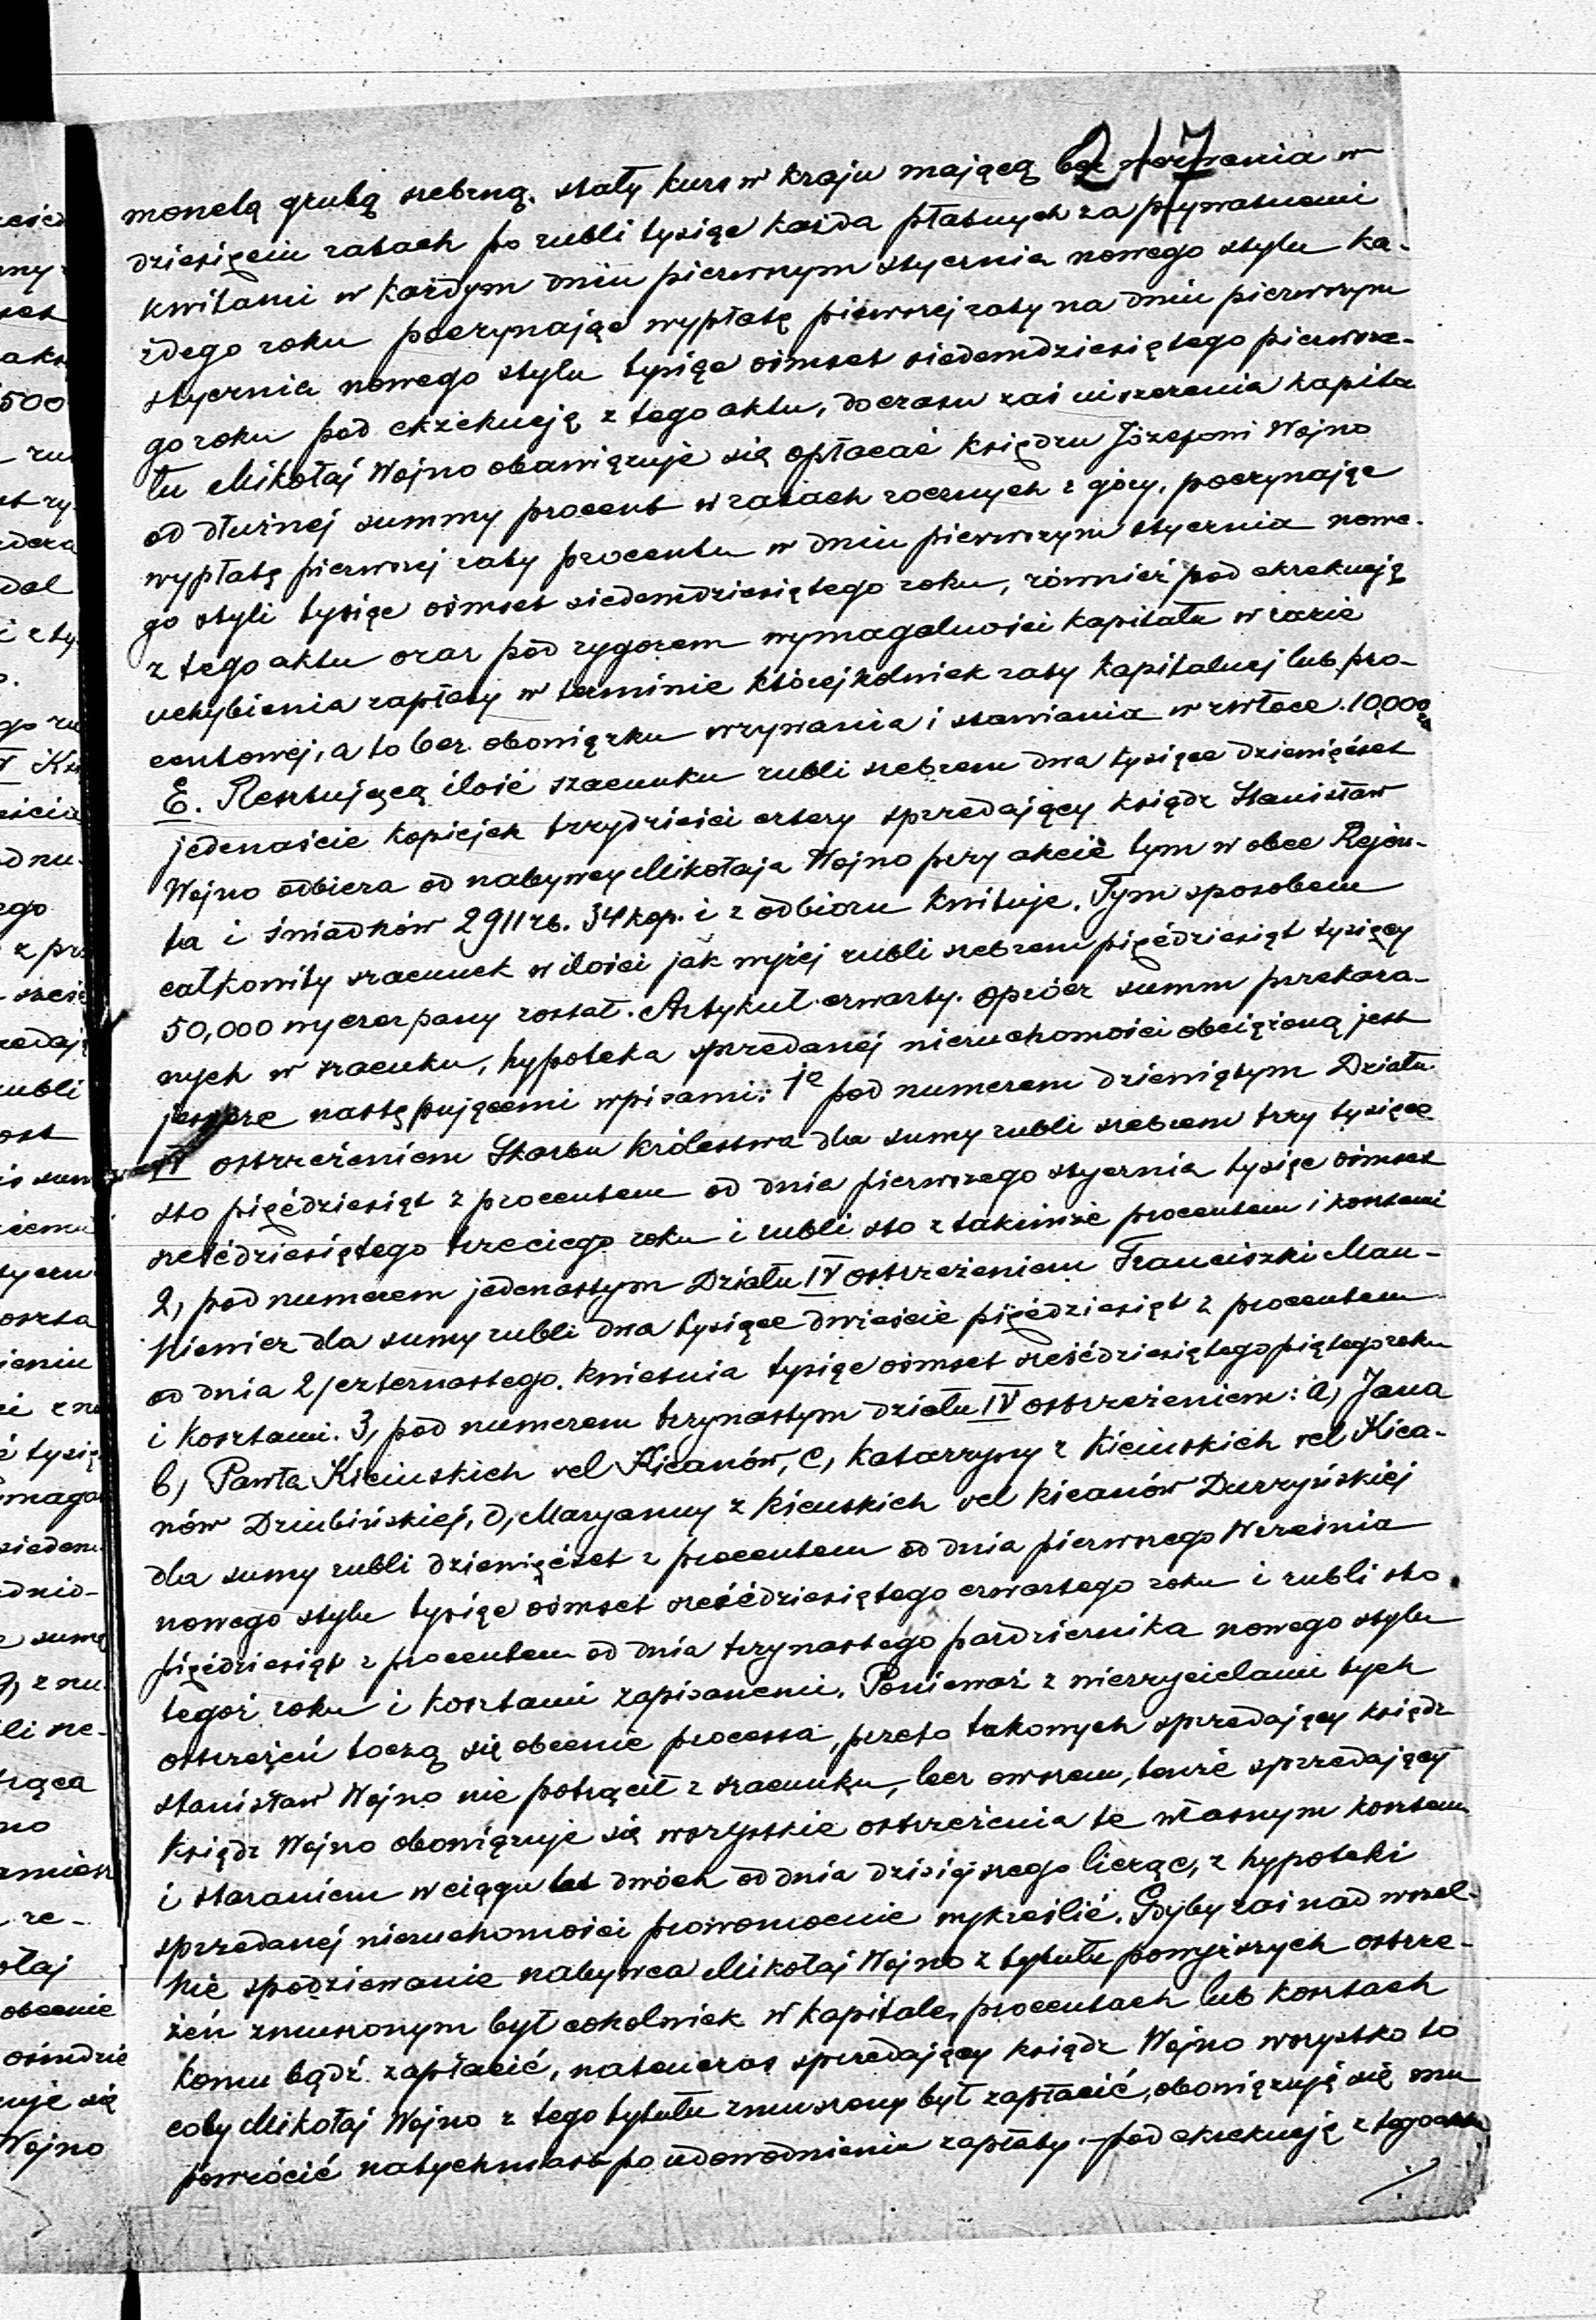 217
monetą grubą srebrną, stały kurs w kraju mającą bez wezwania w
dziesięciu ratach po rubli tysiąc każda płatnych za prywatnemi
kwitami w każdym dniu pierwszym stycznia nowego stylu ka-
żdego roku poczynając wypłatę pierwszej raty na dniu pierwszym
stycznia nowego stylu tysiąc ośmset siedemdziesiątego pierwsze-
go roku pod exekucją z tego aktu, do czasu zaś uiszczenia kapita
łu Mikołaj Wojno obowiązuje się opłacać księdzu Józefowi Wojno
od dłużnej summy procent w ratach rocznych z góry, poczynając
wypłatę pierwszej raty procentu w dniu pierwszym stycznia nowe-
go styli tysiąc ośmset siedemdziesiątego roku, również pod exekucją
z tego aktu oraz pod rygorem wymagalności kapitału w razie
uchybienia zapłaty w terminie którejkolwiek raty kapitalnej lub pro-
centowej, a to bez obowiązku wzywania i stawiania w zwłoce. 10,000
E. Resztującą ilość szacunku rubli srebrem dwa tysiące dziewięćset
jedenaście kopiejek trzydzieści cztery sprzedający ksiądz Stanisław
Wojno odbiera od nabywcy Mikołaja Wojno przy akcie tym w obec Rejen-
ta i świadków 2911 rb. 34 kop. i z odbioru kwituje. Tym sposobem
całkowity szacunek w ilości jak wyżej rubli srebrem pięćdziesiąt tysięcy
50,000 wyczerpany został. Artykuł czwarty. Oprócz summ przekaza-
nych w szacuku, hypoteka sprzedanej nieruchomości obciążoną jest
jeszcze następującemi wpisami: 1o pod numerem dziewiątym Działu
IV ostrzeżeniem Skarbu Królestwa dla sumy rubli srebrem trzy tysiące
sto pięćdziesiąt z procentem od dnia pierwszego stycznia tysiąc ośmset
sześćdziesiątego trzeciego roku i rubli sto z takimże procentem i kosztami
2, pod numerem jedenastym Działu IV ostrzeżeniem Franciszki Man-
kiewicz dla sumy rubli dwa tysiące dwieście pięćdziesiąt z procentem
od dnia 2/czternastego. kwietnia tysiąc ośmset sześćdziesiątego piątego roku
i kosztami. 3, pod numerem trzynastym działu IV ostrzeżeniem: a) Jana
b) Pawła Kicińskich vel Kicanów, c, Katarzyny z Kicińskich vel Kica-
nów Dziubińskiej, d, Maryanny z Kicuskich vel Kicanów Duczyńskiej
dla sumy rubli dziewięćset z procentem od dnia pierwszego Września
nowego stylu tysiąc ośmset sześćdziesiątego czwartego roku i rubli sto
pięćdziesiąt z procentem od dnia trzynastego października nowego stylu
tegoż roku i kosztami zapisanemi. Ponieważ z wierzycielami tych
ostrzeżeń toczą się obecnie processa, przeto takowych sprzedający ksiądz
Stanisław Wojno nie potrącił z szacunku, lecz owszem, tenże sprzedający
Ksiądz Wojno obowiązuje się wszystkie ostrzeżenia te własnym kosztem
i staraniem w ciągu lat dwóch od dnia dzisiejszego licząc, z hypoteki
sprzedanej nieruchomości prawomocnie wykreślić. Gdyby zaś nad wszel-
kie spodziewanie nabywca Mikołaj Wojno z tytułu powyższych ostrze-
żeń zmuszonym był cokolwiek w kapitale, procentach lub kosztach
komu bądź zapłacić, natenczas sprzedający ksiądz Wojno wszystko to
coby Mikołaj Wojno z tego tytułu zmuszony był zapłacić, obowiązują się mu
powrócić natychmiast po udowodnieniu zapłaty. pod exekucją z tego aktu